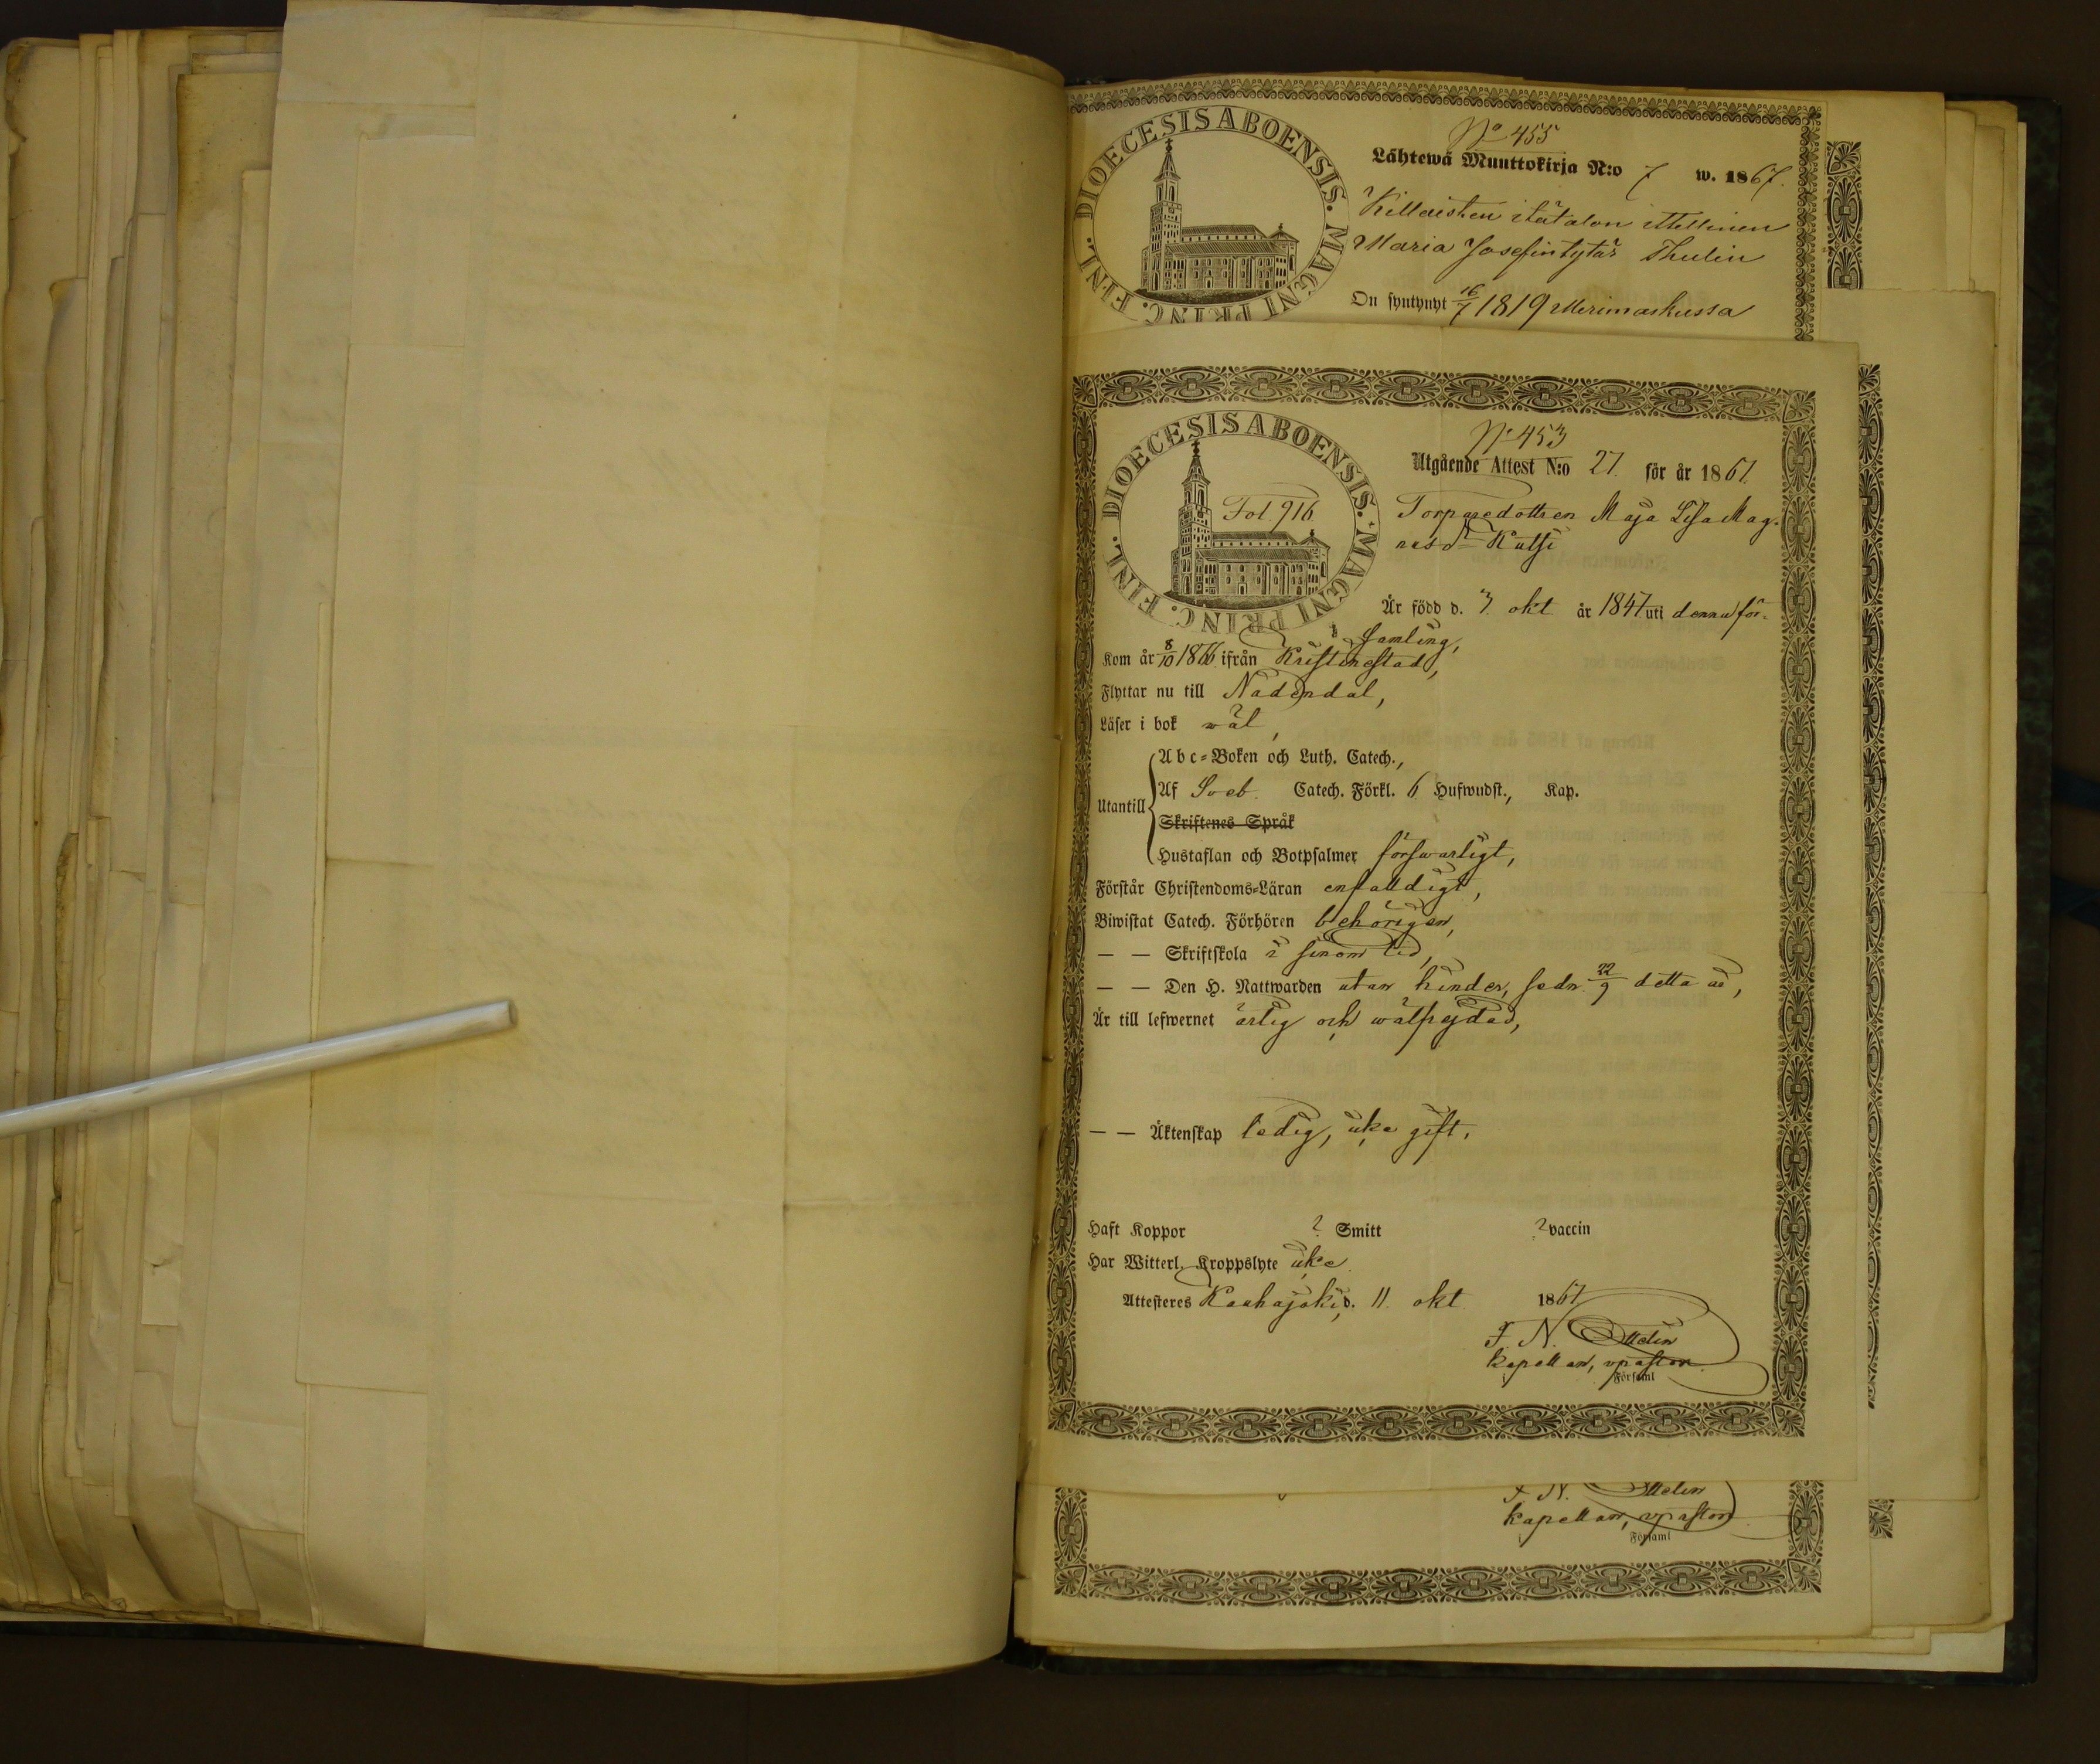 DIOECESIS ABOENSIS. MAGNI PRINC. FINL.
No 455
Lähtewä Muuttokirja N:o 7 w. 1867.
Killaisten itätalon ittellinen
Maria Josefintytär Thulin
On syntynyt 16/7 1819 Merimaskussa
DIOECESIS ABOENSIS. MAGNI PRINC. FINL.
Fol. 916
No 453
Utgående Attest N:o 27. för år 1867.
Torparedottren Maja Lisa Mag-
nusdr
Är född d. 3 okt år 1847 uti denna för-
samling,
Kom år 8/10 1866 ifrån Kristinestad,
Flyttar nu till Nådendal,
Läser i bok wäl,
Utantill
Abc-Boken och Luth. Catech.,
Af Sveb. Catech. Förkl. 6 Hufwudst., Kap.
Skriftenes Språk
Hustaflan och Botpsalmer förswarligt,
Förstår Christendoms-Läran enfalldigt,
Biwistat Catech. Förhören behörigen,
— — Skriftskola i sinom tid,
— — Den H. Nattwarden utan hinder, sedn. 22/9 detta år,
Är till lefwernet ärlig och wälfrejdad,
— — Äktenskap ledig, icke gift.
Haft Koppor ? Smitt ? vaccin
Har Witterl. Kroppslyte icke
Attesteres Kauhajoki, d. 11 okt 1867
F N.
kapellan, vpastor
Församl
F N.
kapellan, vpastor
Församl